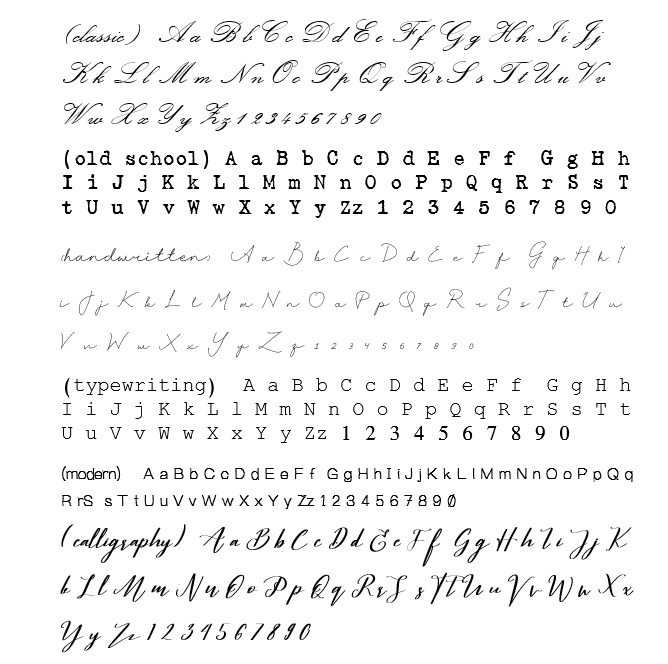 (classic) A a B b C c D d E e F f G g H h I i J j
K k L l M m N n O o P p Q q R r S s T t U u V v
W w X x Y y Z z 1 2 3 4 5 6 7 8 9 0
(old school) A a B b C c D d E e F f G g H h
I i J j K k L l M m N n O o P p Q q R r S s T
t U u V v W w X x Y y Zz 1 2 3 4 5 6 7 8 9 0
handwritten) A a B b C c D d E e F f G g H h I
i J j K k L l M m N n O o P p Q q R r S s T t U u
V v W w X x Y y Z z 1 2 3 4 5 6 7 8 9 0
(typewriting) A a B b C c D d E e F f G g H h
I i J j K k L l M m N n O o P p Q q R r S s T t
U u V v W w X x Y y Zz 1 2 3 4 5 6 7 8 9 0
(modern) A a B b C c D d E e F f G g H h I i J j K k L l M m N n O o P p Q q
R r S s T t U u V v W w X x Y y Zz 1 2 3 4 5 6 7 8 9 0
(calligraphy) A a B b C c D d E e F f G g H h I i J j K
k L l M m N n O o P p Q q R r S s T t U u V v W w X x
Y y Z z 1 2 3 4 5 6 7 8 9 0